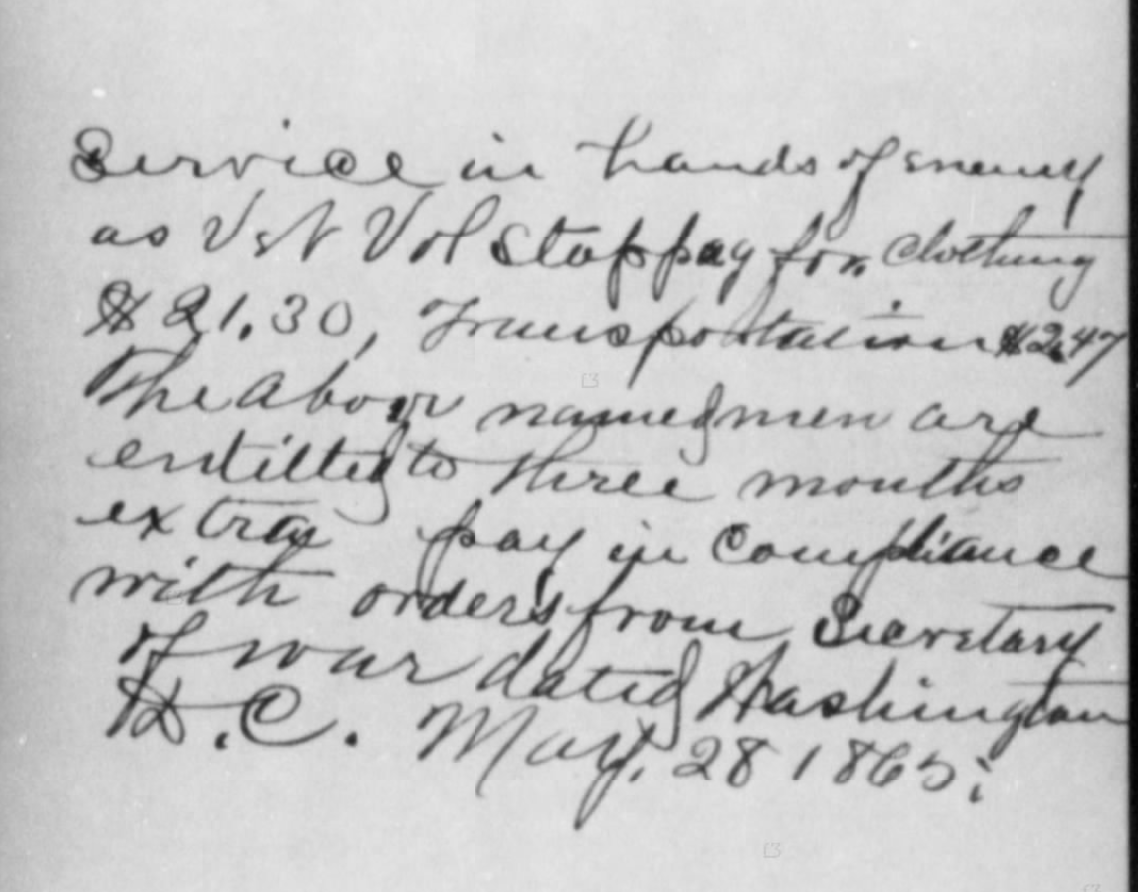 Service in hands of enemy
as Vet Vol Stop pay for clothing
$21.30, Transportation $2.47
The above named men are
entitled to three months
extra pay in compliance
with orders from Secretary
of war dated Washington
D.C. May. 28 1865;